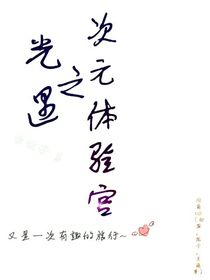 次元体验宫
之
光遇
又是一次有趣的旅行~